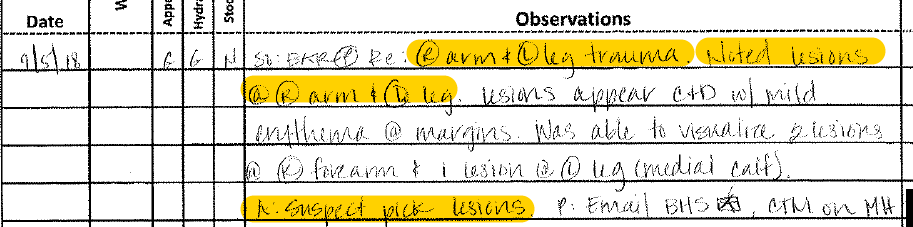 Observations
Date W Appe Hydra Stoo
9/5/18 G G N S: Re: Ⓡ arm & Ⓛ leg trauma. Noted lesions
@ Ⓡ arm & Ⓛ leg. lesions appear C+D w/ mild
erythema @ margins. Was able to visualize 2 lesions
@ Ⓡ forearm & 1 lesion @ Ⓛ leg (medial calf).
A: Suspect pick lesions. P: Email BHS, CTM on MH